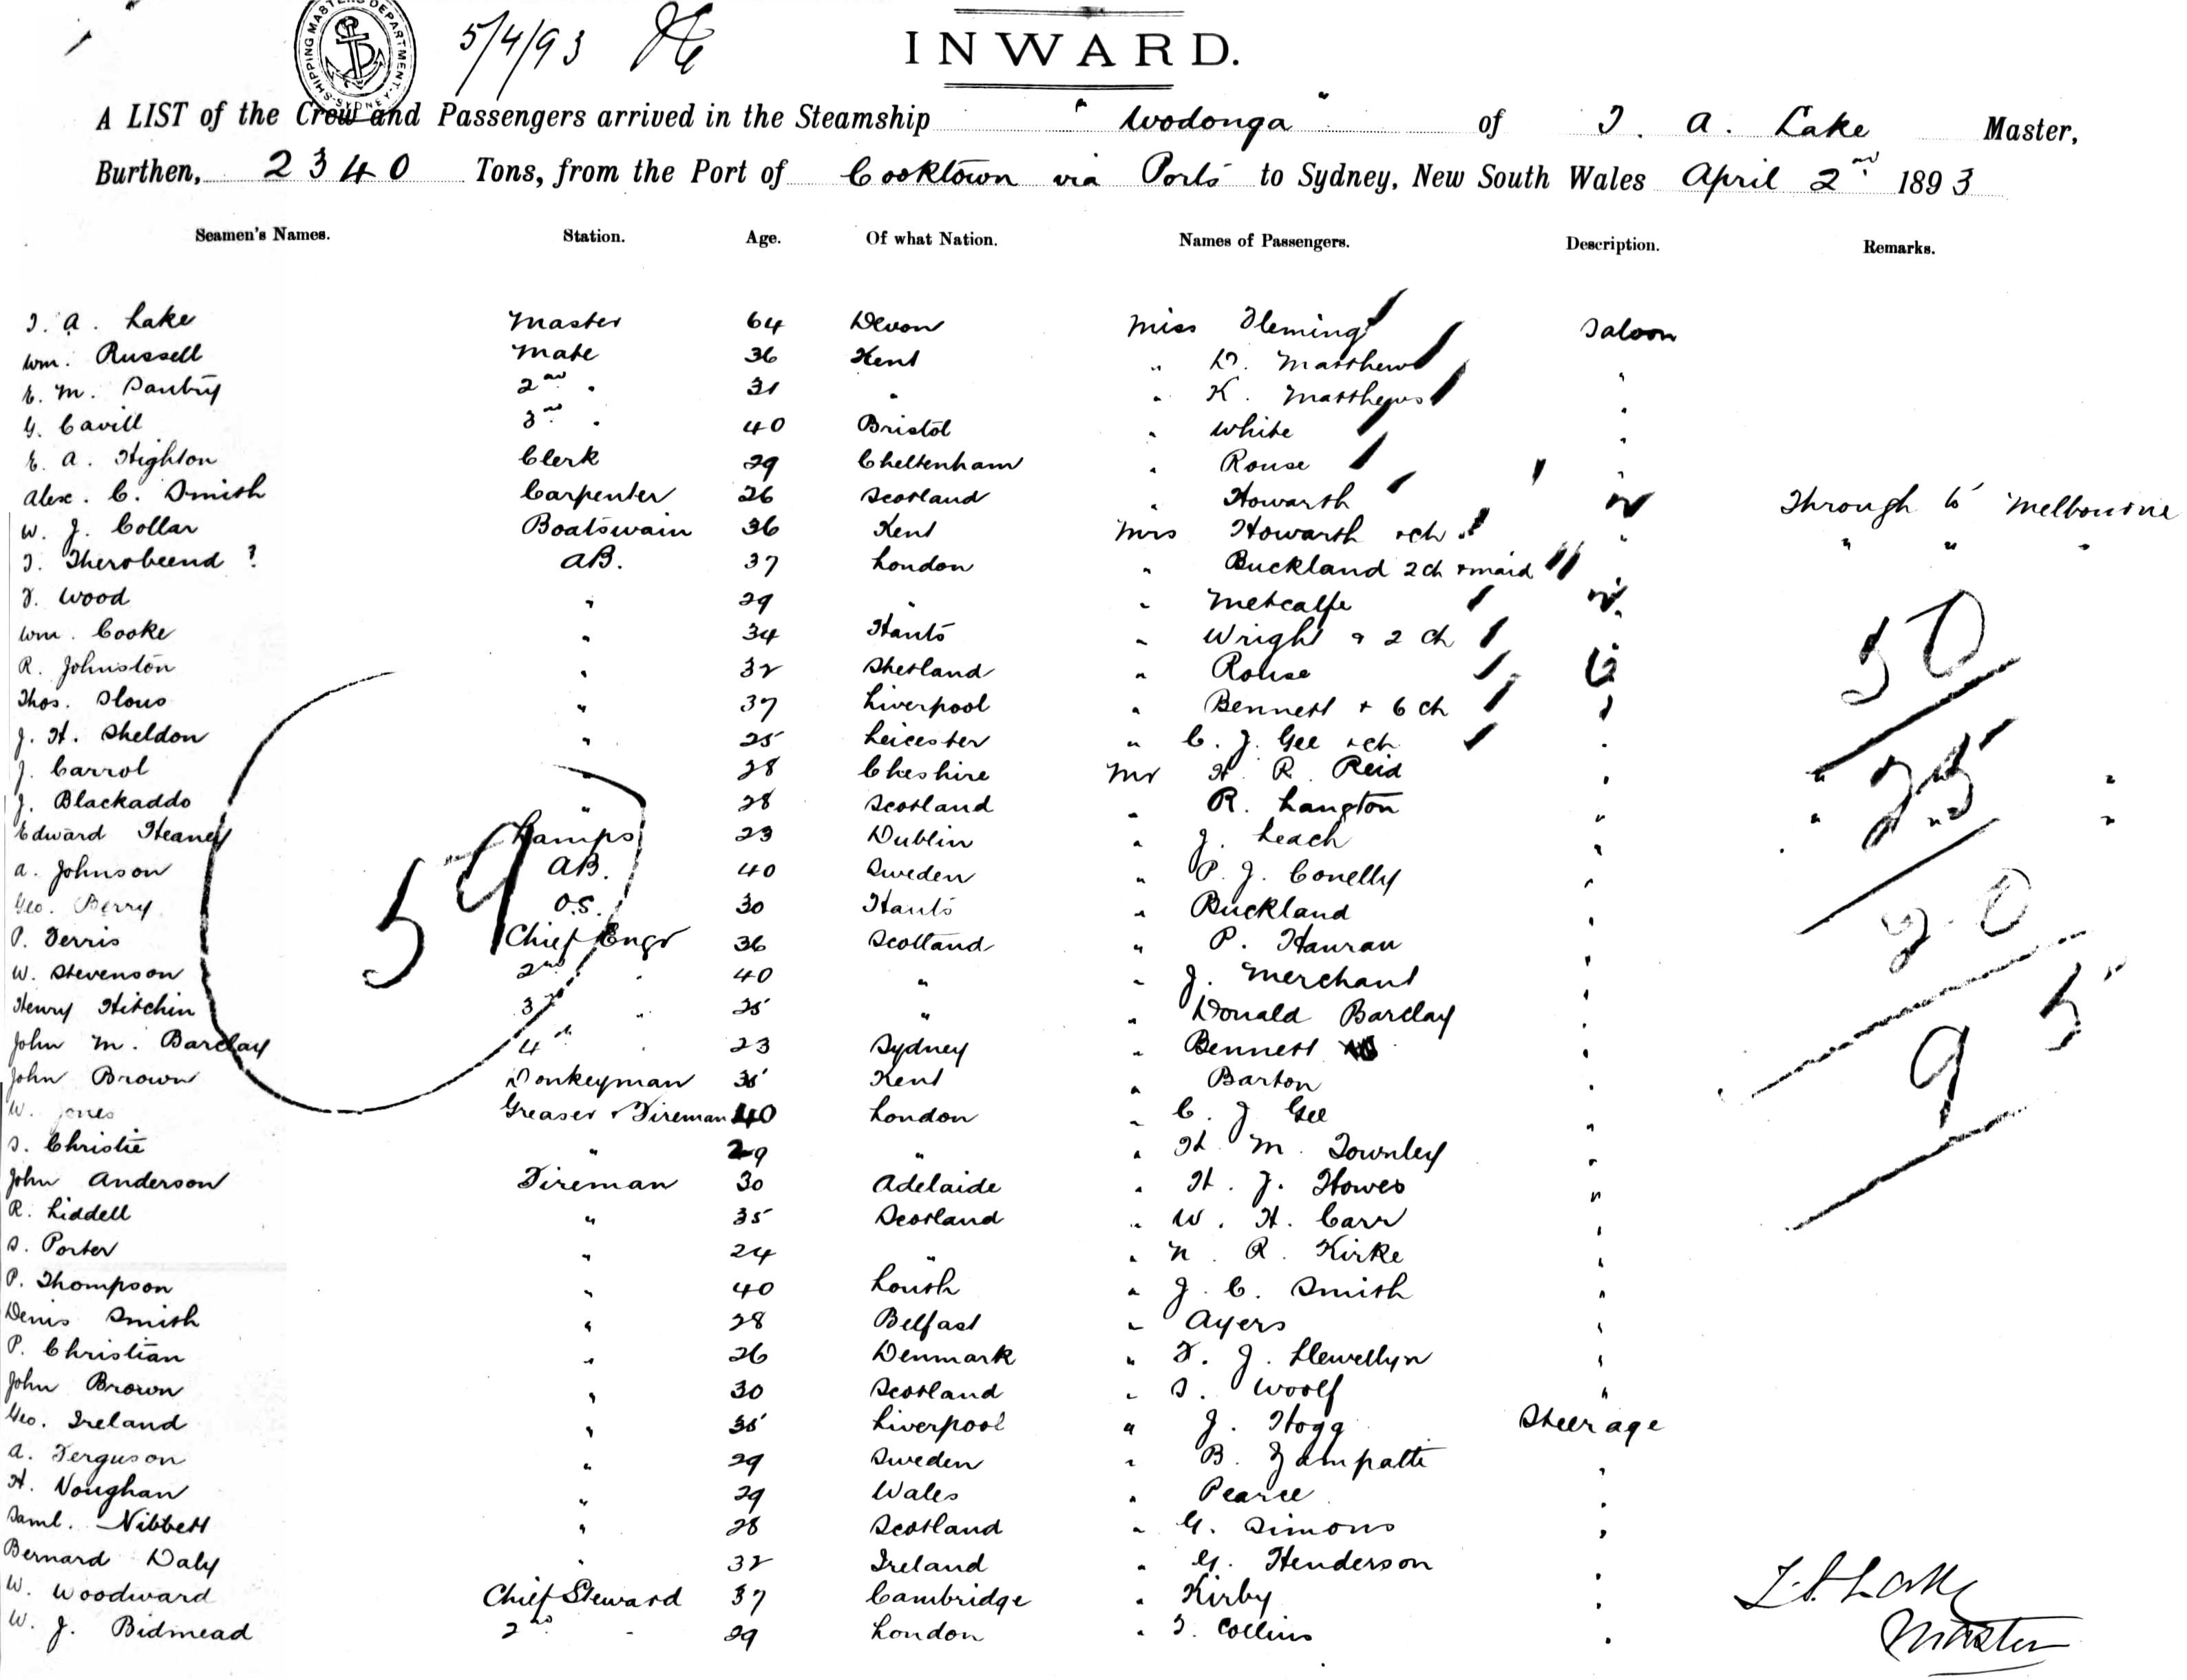 SHIPPING MASTERS DEPARTMENT SYDNEY
5/4/93
INWARD.
A LIST of the Crew and Passengers arrived in the Steamship "Wodonga" of T. A. Lake Master,
Burthen, 2340 Tons, from the Port of Cooktown via Ports to Sydney, New South Wales April 2nd 1893
Seamen's Names. Station. Age. Of what Nation. Names of Passengers. Description. Remarks.
T. A. Lake Master 64 Devon Miss Fleming Saloon
Wm. Russell Mate 36 Kent " D. Matthews "
E. M. 2nd " 31 " " K. Matthews "
G. Cavill 3rd " 40 Bristol " White "
E. A. Highton Clerk 29 Cheltenham " Rouse "
Alex. C. Smith Carpenter 26 Scotland " Howarth " Through to Melbourne
W. J. Collar Boatswain 36 Kent Mrs Howarth + ch " " " "
T. Therobeend ? AB. 37 London " Buckland 2 ch + maid
F. Wood " 29 " " Metcalfe "
Wm. Cooke " 34 Hants " Wright & 2 ch 50
R. Johnston " 32 Shetland " Rouse
Thos. Slous " 37 Liverpool " Bennett + 6 ch "
J. H. Sheldon " 25 Leicester " C. J. Gee + ch "
J. Carrol " 28 Cheshire Mr H. R. Reid " " 25 "
J. Blackaddo " 28 Scotland " R. Langton " " " "
Edward Heaney Lamps 23 Dublin " J. Leach "
A. Johnson AB. 40 Sweden " P. J. Conelly "
Geo. Berry O.S. 30 Hants " Buckland " 20
P. Ferris 59 Chief Engr 36 Scotland " P. Hanran "
W. Stevenson 2nd " 40 " " J. Merchant "
Henry Hitchin 3rd " 25 " " Donald Barclay "
John M. Barclay 4th " 23 Sydney " Bennett " 95
John Brown Donkeyman 35 Kent " Barton "
W. Jones Greaser & Fireman 40 London " C. J. Gee "
S. Christie " 29 " " H. M. Townley "
John Anderson Fireman 30 Adelaide " H. J. Howes "
R. Liddell " 35 Scotland " W. H. Carr "
S. Porter " 24 " " N. R. Kirke "
P. Thompson " 40 Louth " J. C. Smith "
Denis Smith " 28 Belfast " Ayers "
P. Christian " 26 Denmark " F. J. Llewellyn "
John Brown " 30 Scotland " S. Woolf "
Geo. Ireland " 35 Liverpool " J. Hogg Steerage
A. Ferguson " 29 Sweden " B. Zampatti "
H. Voughan " 29 Wales " Pearce "
Saml. Nibbett " 28 Scotland " G. Simons "
Bernard Daly " 32 Ireland " G. Henderson "
W. Woodward Chief Steward 37 Cambridge " Kirby " T. A. Lake
W. J. Bidmead 2nd " 29 London " T. Collins " Master